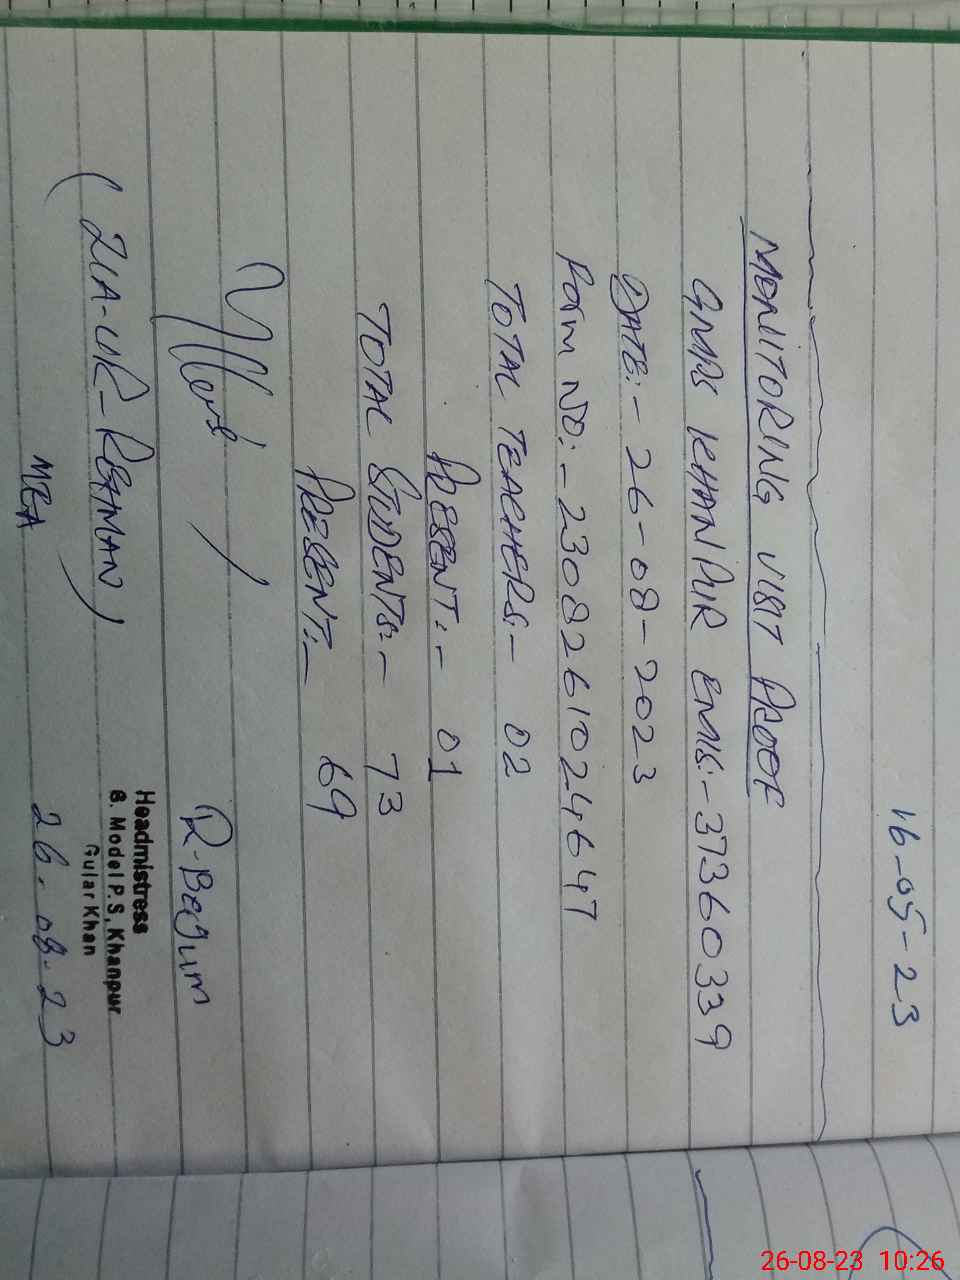 16-05-23
MONITORING VISIT PROOF
GMPS KHANPUR EMIS:- 37360339
DATE:- 26-08-2023
Form NO:- 2308261024647
TOTAL TEACHERS:- 02
PRESENT:- 01
TOTAL STUDENTS:- 73
PRESENT:- 69
R-Begum
(ZIA-UR-REHMAN)
MEA
Headmistress
G. Model P.S, Khanpur
Gular Khan
26.08.23
26-08-23 10:26